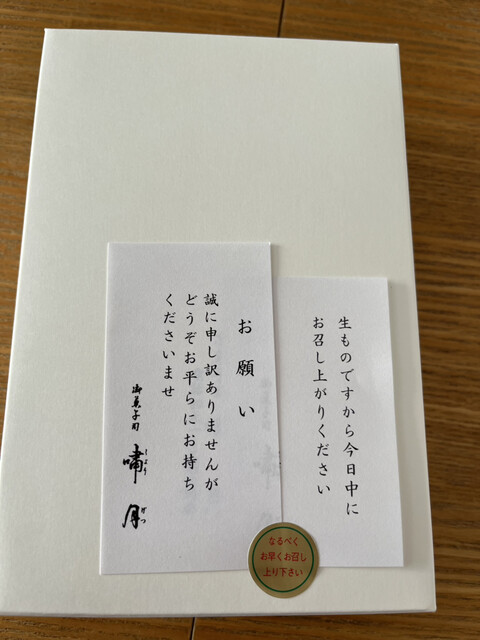 生ものですから今日中に
お召し上がりください
お願い
誠に申し訳ありませんが
どうぞお平らにお持ち
くださいませ
御菓子司
嘯月
しょう
げつ
なるべく
お早くお召し
上り下さい